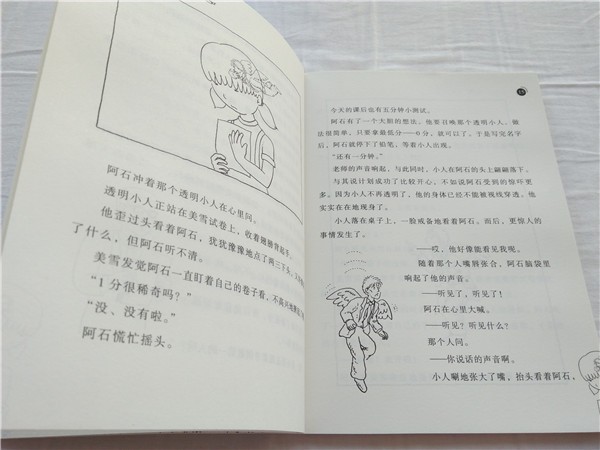 阿石冲着那个透明小人在心里问。
透明小人正站在美雪试卷上，收着翅膀背起手。
他歪过头看着阿石，犹犹豫豫地点了两三下头，
了什么，但阿石听不清。
美雪发觉阿石一直盯着自己的卷子看，不高兴地
“1分很稀奇吗？”
“没、没有啦。”
阿石慌忙摇头。
今天的课后也有五分钟小测试。
阿石有了一个大胆的想法，他要召唤那个透明小人。做
法很简单，只要拿最低分——0分，就可以了。于是写完名字
后，阿石就停下了铅笔，等着小人出现。
“还有一分钟。”
老师的声音响起，与此同时，小人在阿石的头上翩翩落下。
与其说计划成功了比较开心，不如说阿石受到的惊吓更
多。因为小人不再透明了，他的身体已经不能被视线穿透，他
实实在在地现身了。
小人落在桌子上，一脸戒备地看着阿石。而后，更惊人的
事情发生了。
——哎，他好像能看见我呢。
随着那个人嘴唇张合，阿石脑袋里
响起了他的声音。
——听见了，听见了！
阿石在心里大喊。
——听见？听见什么？
那个人问。
——你说话的声音啊。
小人唰地张大了嘴，抬头看着阿石，